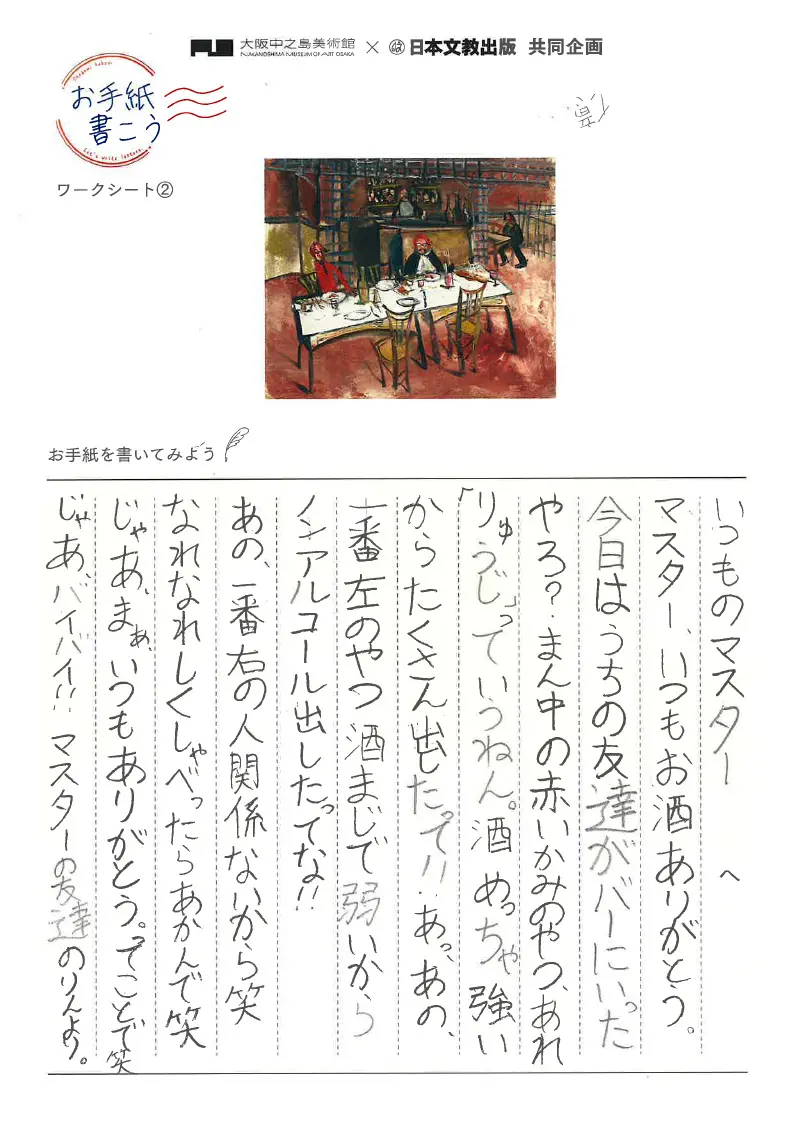 大阪中之島美術館
NAKANOSHIMA MUSEUM OF ART OSAKA
×
日本文教出版 共同企画
お手紙
書こう
Let's write letters.
ワークシート②
お手紙を書いてみよう
いつものマスターへ
マスター、いつもお酒ありがとう。
今日はうちの友達がバーにいった
やろ?まん中の赤いかみのやつ、あれ
「りゅうじ」っていうねん。酒めっちゃ強い
からたくさん出したって!!あっ、あの、
一番左のやつ酒まじで弱いから
ノンアルコール出したってな!!
あの、一番右の人関係ないから笑
なれなれしくしゃべったらあかんで笑
じゃあ、まぁ、いつもありがとう。てことで笑
じゃあ、バイバイ!!マスターの友達のりんより。